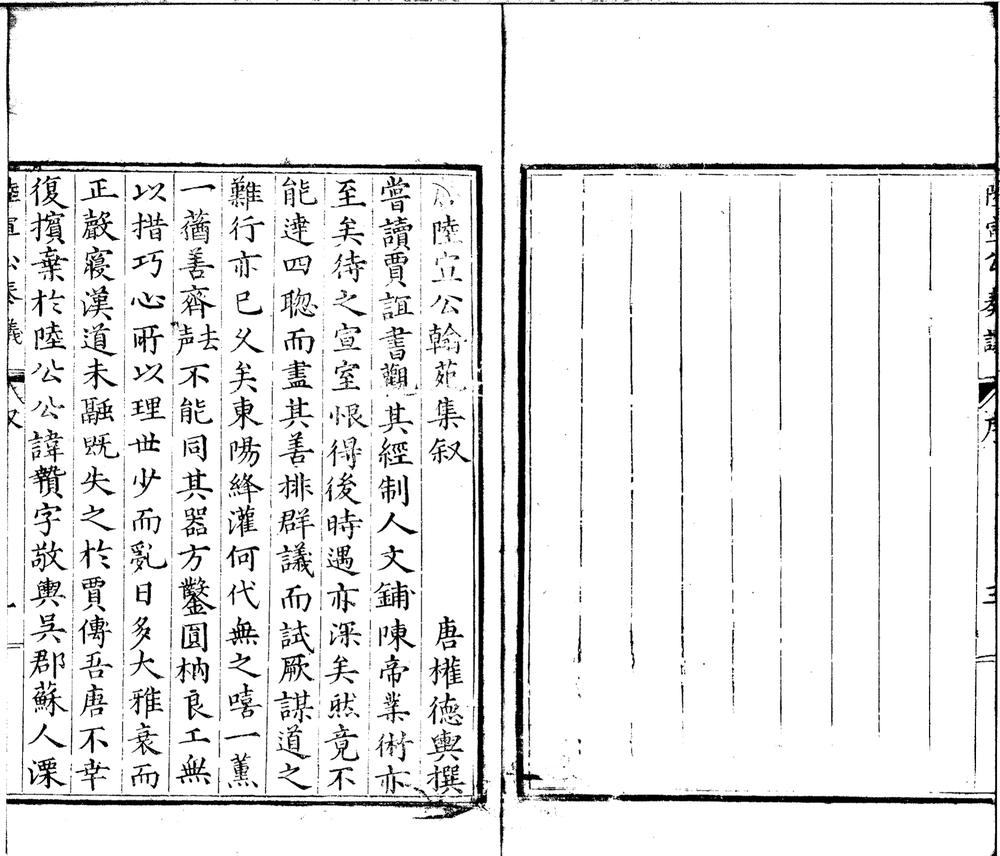 陸宣公奏議 序 三
陸宣公翰苑集叙 唐權德輿撰
嘗讀賈誼書觀其經制人文鋪陳帝業術亦
至矣待之宣室恨得後時遇亦深矣然竟不
能達四聦而盡其善排群議而試厥謀道之
難行亦已久矣東陽絳灌何代無之嘻一薫
一蕕善齊去声不能同其器方鑿圓枘良工無
以措巧心所以理世少而亂日多大雅衰而
正聲寢漢道未融既失之於賈傅吾唐不幸
復擯棄於陸公公諱贄字敬輿吳郡蘇人溧
陸宣公奏議 叙 一